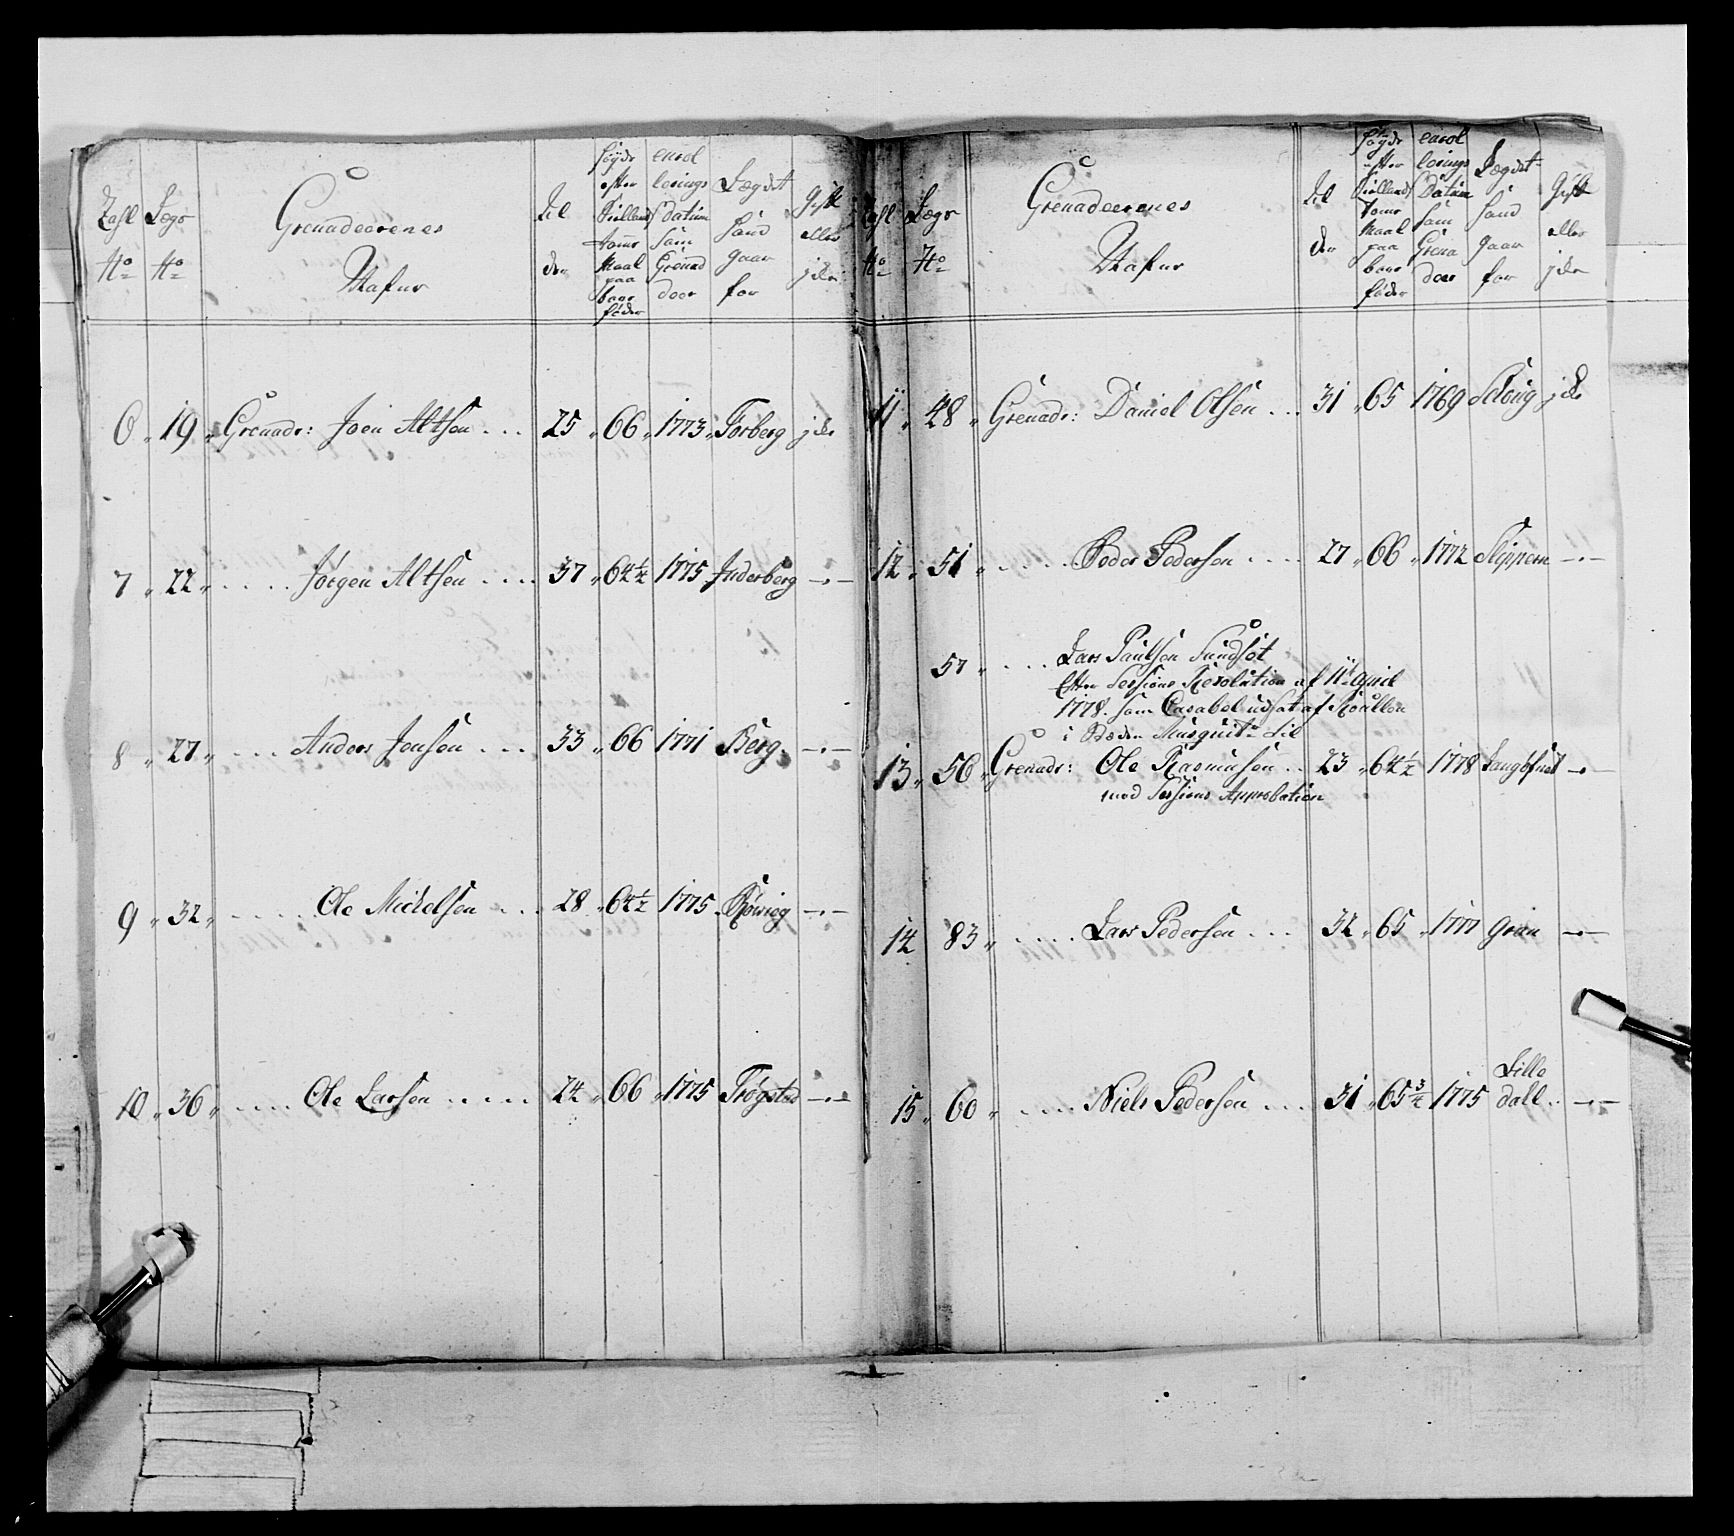 Tahl No
Lægs No
Grenadeerenes Nafne
Al
der
Høyde
efter
Siellands
tome
Maal
paa
bare
føder
enrol
lerings
datum
som
Grenad
deer
Lægdet
hand
gaar
for
Gift
eller
jcke
6 " 19 " Grenadr: Joen Altsen .... 25 " 66 " 1773 " Torberg jcke
7 " 22 " ..... Jørgen Altsen .... 37 " 64½ 1775 Inderberg —"—
8 " 27 " .... Anders Jensen .... 33 " 66 " 1771 Berg —"—
9 " 32 " ..... Ole Michelsen ... 28 " 64½ 1775 —"—
10 " 36 " ..... Ole Larsen ..... 24 " 66 " 1775 Frøgsted —"—
Tahl No
Lægs No
Grenadeerenes Nafne
Al
der
Høyde
efter
Siellands
tome
Maal
paa
bare
føder
enrol
lerings
Datum
som
Grena
deer
Lægdet
hand
gaar
for
Gift
eller
jcke
11 " 48 " Grenadr: Daniel Olsen ... 31 " 65 1769 jcke
12 " 51 " ..... Peder Pedersen .... 27 " 66 " 1772 Slippern —"—
57 " .... Lars Paulsen Sundsøt
Efter Sessions Resolution af 11t April
1778 som Capabel udsat af Roullen
i Steden Musquitr til
13 " 56 " Grenadr: Ole Rasmusen .. 23 " 64½ 1778 —"—
med Sessions Approbation
14 83 " ..... Lars Pedersen ... 32 " 65 " 1777 Gran —"—
15 " 60 " ..... Niels Pedersen ... 31 " 65¾ 1775 Lille
dall .. —"—